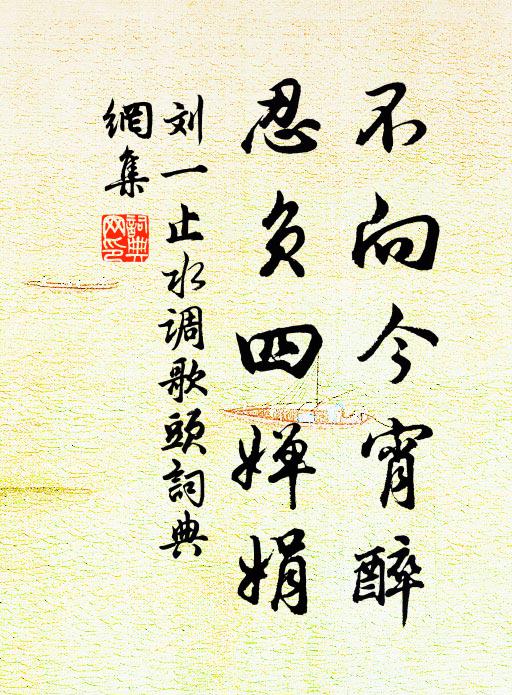 不向今宵醉
忍负四婵娟
刘一止水调歌頭詞典
網集
詞典
网印